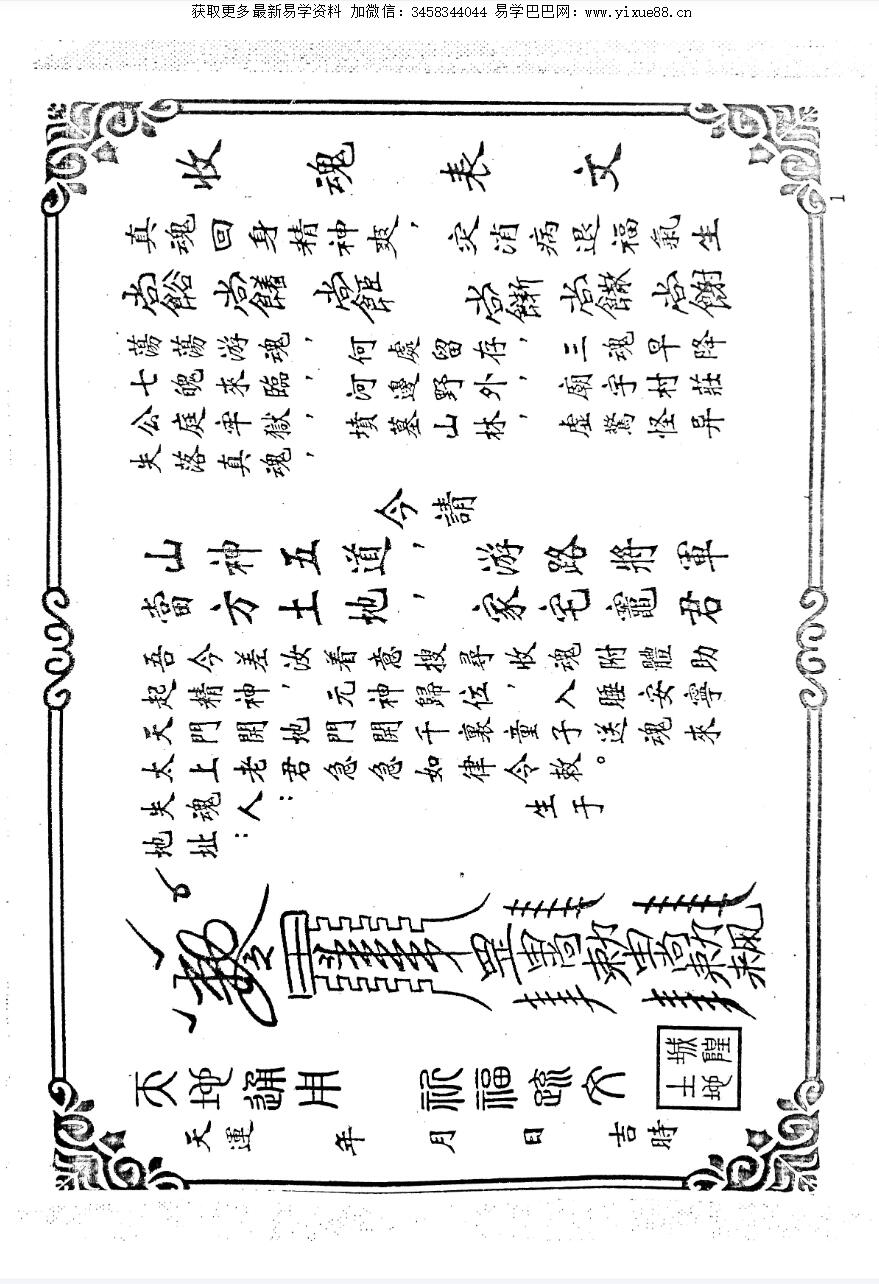 获取更多最新易学资料 加微信：3458344044 易学巴巴网：www.yixue88.cn
1
收魂表文
真魂回身精神爽，災消病退福氣生
蕩蕩游魂，何處留存，三魂早降
七魄來臨，河邊野外，廟宇村莊
公庭牢獄，墳墓山林，虛驚怪异
失落真魂，
今請
山神五道，游路將軍
當方土地，家宅竈君
吾今差汝着意搜尋，收魂附體助
起精神，元神歸位，入睡安寧
天門開地門開千裏童子送魂來
太上老君急急如律令敕。
失魂人： 生于
地址：
天地通用 祈福疏文
城隍
土地
天運 年 月 日 吉時